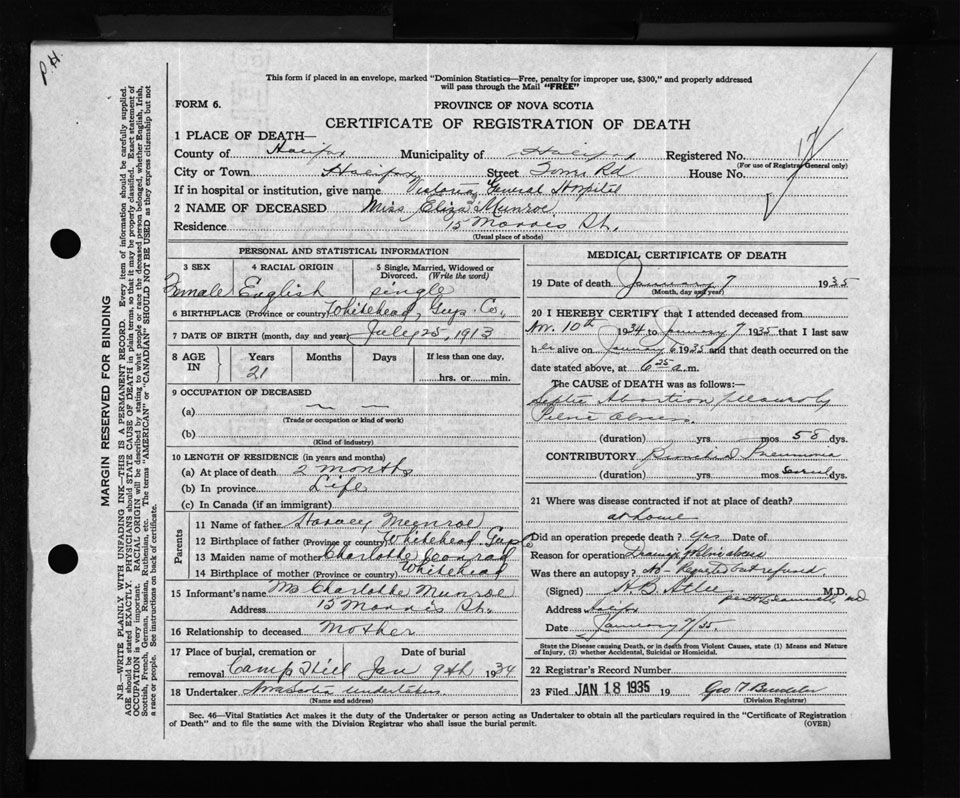 PH
This form if placed in an envelope, marked "Dominion Statistics—Free, penalty for improper use, $300," and properly addressed
will pass through the Mail "FREE"
FORM 6.
PROVINCE OF NOVA SCOTIA
CERTIFICATE OF REGISTRATION OF DEATH
1 PLACE OF DEATH—
County of Halifax Municipality of Halifax Registered No.
(For use of Registrar General only)
City or Town Halifax Street Tower Rd House No.
If in hospital or institution, give name Victoria General Hospital
2 NAME OF DECEASED Miss Eliza Munroe
Residence 15 Morris St.
(Usual place of abode)
MARGIN RESERVED FOR BINDING
N.B.—WRITE PLAINLY WITH UNFADING INK—THIS IS A PERMANENT RECORD. Every item of information should be carefully supplied.
AGE should be stated EXACTLY. PHYSICIANS should STATE CAUSE OF DEATH in plain terms, so that it may be properly classified. Exact statement of
OCCUPATION is very important. RACIAL ORIGIN will be described by stating to what people or race the deceased person belonged, whether English, Irish,
Scottish, French, German, Russian, Ruthenian, etc. The terms "AMERICAN" or "CANADIAN" SHOULD NOT BE USED as they express citizenship but not
a race or people. See instructions on back of certificate.
PERSONAL AND STATISTICAL INFORMATION
3 SEX
Female
4 RACIAL ORIGIN
English
5 Single, Married, Widowed or
Divorced. (Write the word)
single
6 BIRTHPLACE (Province or country) Whitehead, Guys. Co.,
7 DATE OF BIRTH (month, day and year) July 25, 1913
8 AGE IN Years Months Days If less than one day.
21 hrs. or min.
9 OCCUPATION OF DECEASED
(a)
(Trade or occupation or kind of work)
(b)
(Kind of industry)
10 LENGTH OF RESIDENCE (in years and months)
(a) At place of death 2 months
(b) In province Life
(c) In Canada (if an immigrant)
Parents
11 Name of father Munroe
12 Birthplace of father (Province or country) Whitehead Guys
13 Maiden name of mother Charlotte Conrad
14 Birthplace of mother (Province or country) Whitehead
15 Informant's name Mrs Charlotte Munroe
Address 15 Morris St.
16 Relationship to deceased Mother
17 Place of burial, cremation or Date of burial
removal Camp Hill Jan 9th 1934
18 Undertaker Nova Scotia Undertakers
(Name and address)
MEDICAL CERTIFICATE OF DEATH
19 Date of death January 7 1935
(Month, day and year)
20 I HEREBY CERTIFY that I attended deceased from
Nov. 10th 1934 to January 7 1935 that I last saw
her alive on January 6 1935 and that death occurred on the
date stated above, at 6 25 a.m.
The CAUSE of DEATH was as follows:—
Septic Abortion
Pelvic Abscess
(duration) yrs. mos 58 dys.
CONTRIBUTORY Bronchial Pneumonia
(duration) yrs. mos several dys.
21 Where was disease contracted if not at place of death?
at home
Did an operation precede death? yes Date of
Reason for operation Drainage Pelvic abscess
Was there an autopsy? No - Requested but refused.
(Signed) H B Atlee M.D.
Address Halifax
Date January 7/35.
State the Disease causing Death, or in death from Violent Causes, state (1) Means and Nature
of Injury, (2) whether Accidental, Suicidal or Homicidal.
22 Registrar's Record Number
23 Filed JAN 18 1935 19 Geo T
(Division Registrar)
Sec. 46—Vital Statistics Act makes it the duty of the Undertaker or person acting as Undertaker to obtain all the particulars required in the "Certificate of Registration
of Death" and to file the same with the Division Registrar who shall issue the burial permit. (OVER)